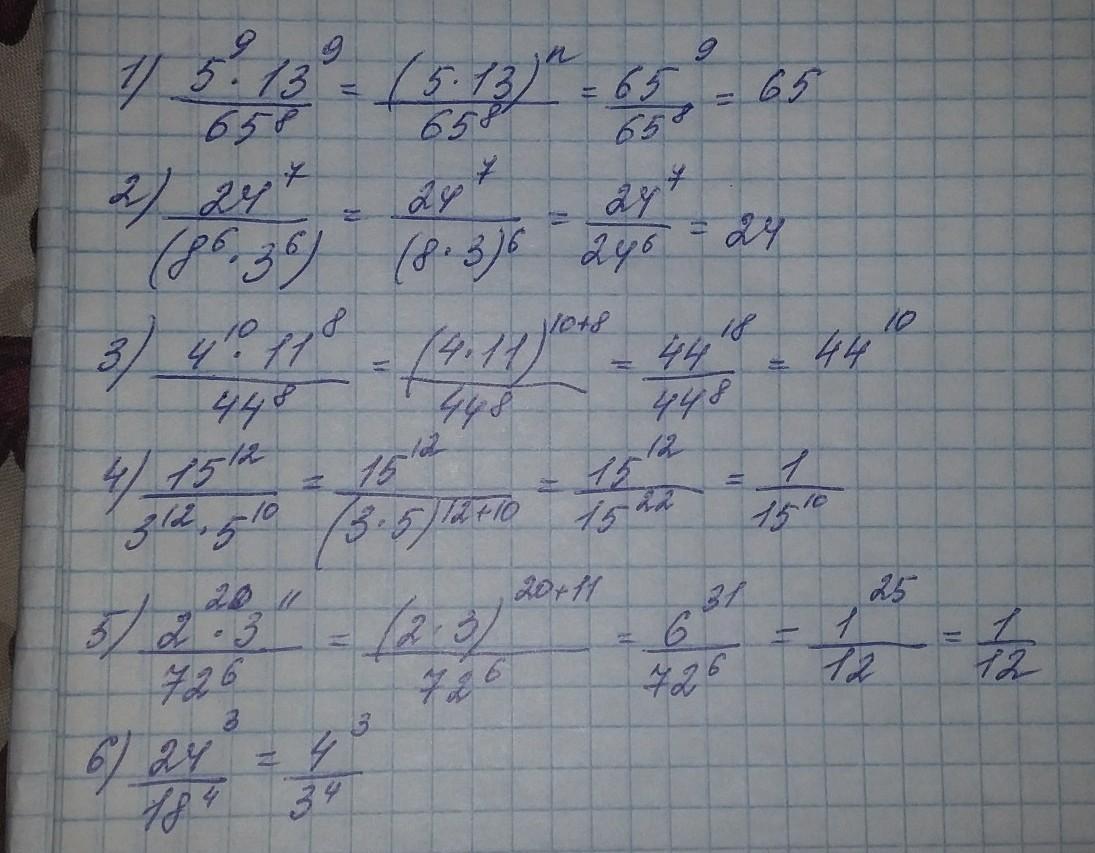 1) 5^9 · 13^9 / 65^8 = (5 · 13)^n / 65^8 = 65^9 / 65^8 = 65
2) 24^7 / (8^6 · 3^6) = 24^7 / (8 · 3)^6 = 24^7 / 24^6 = 24
3) 4^10 · 11^8 / 44^8 = (4 · 11)^10+8 / 44^8 = 44^18 / 44^8 = 44^10
4) 15^12 / 3^12 · 5^10 = 15^12 / (3 · 5)^12+10 = 15^12 / 15^22 = 1 / 15^10
5) 2^20 · 3^11 / 72^6 = (2 · 3)^20+11 / 72^6 = 6^31 / 72^6 = 1^25 / 12 = 1 / 12
6) 24^3 / 18^4 = 4^3 / 3^4